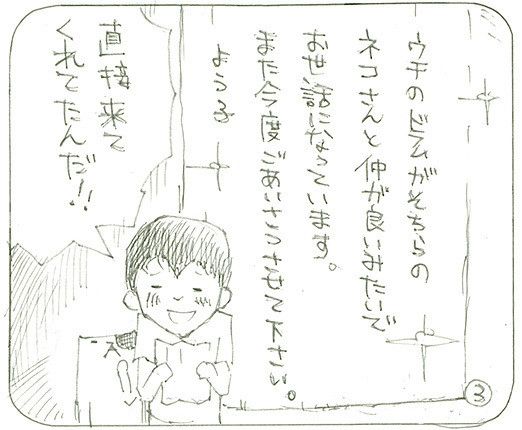 ウチのビムがそちらの
ネコさんと仲が良いみたいで
お世話になっています。
また今度ごあいさつさせて下さい。
ようこ
直接来て
くれてたんだ!!
3